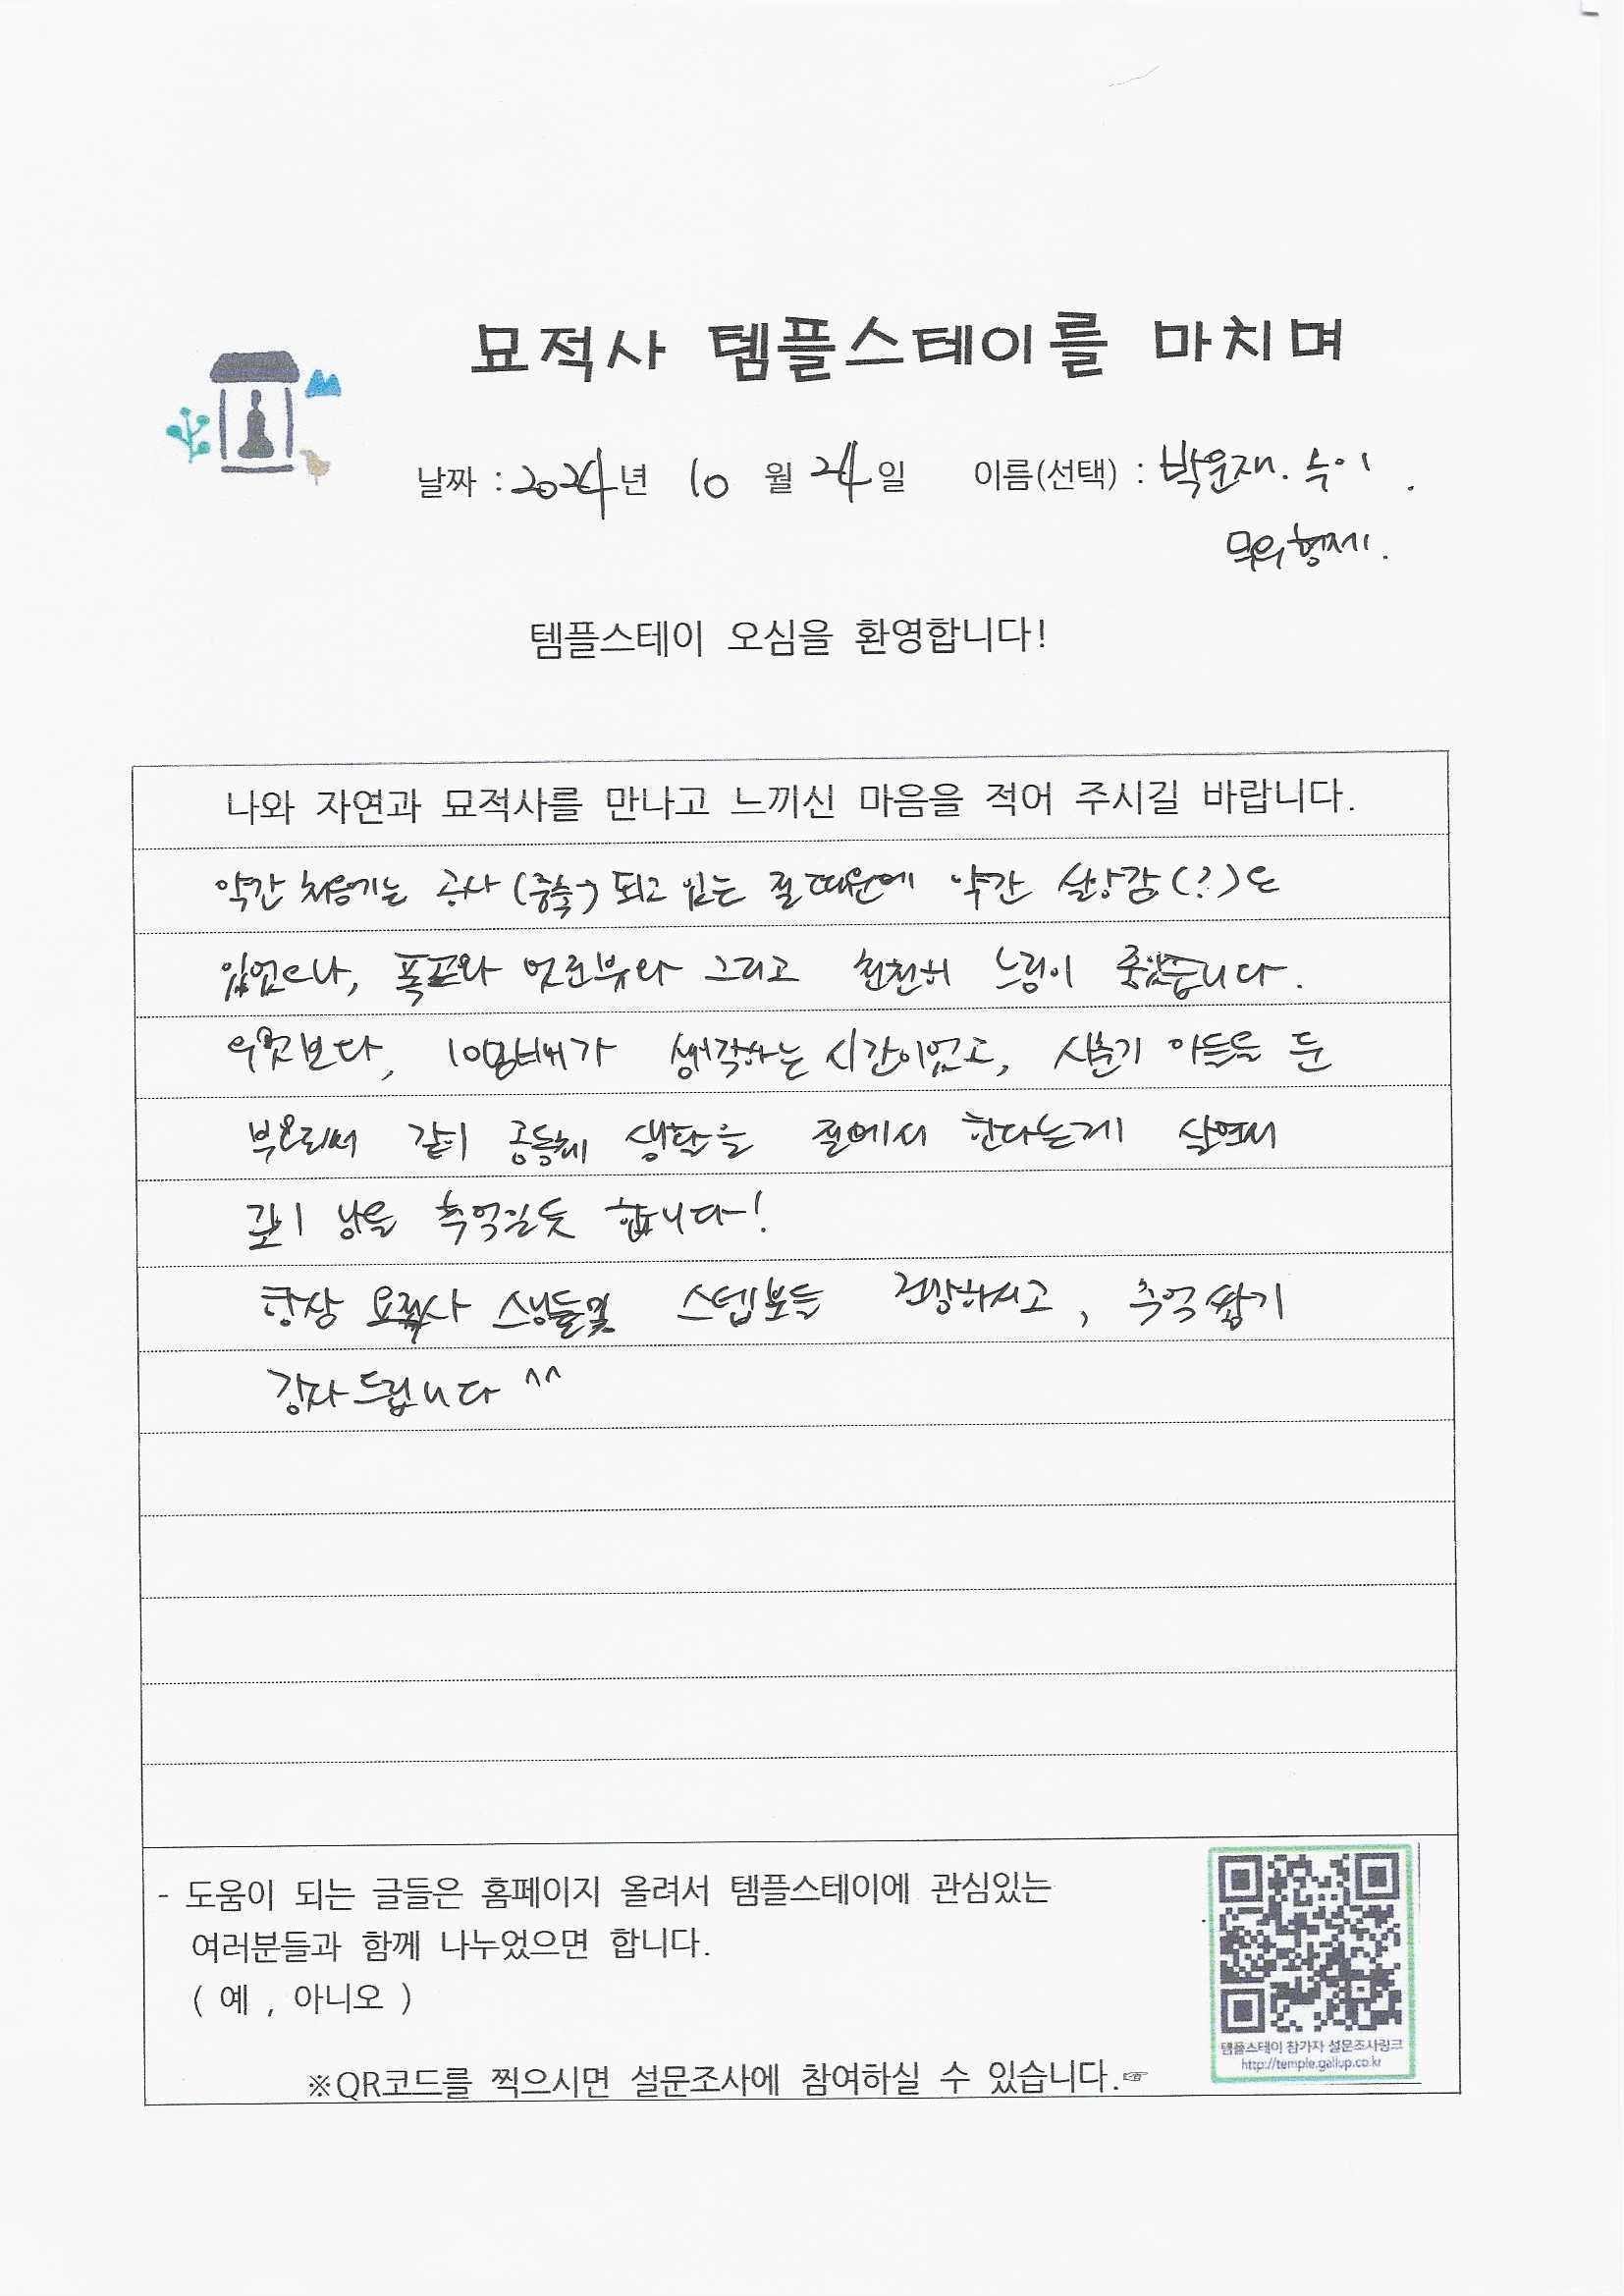 묘적사 템플스테이를 마치며
날짜 : 2024년 10 월 24일 이름(선택) : 박윤재. 수이.
형제.
템플스테이 오심을 환영합니다!
나와 자연과 묘적사를 만나고 느끼신 마음을 적어 주시길 바랍니다.
약간 처음에는 공사(증축) 되고 있는 절 때문에 약간 실망감(?)도
있었으나, 폭포와 멋진뷰와 그리고 천천히 느림이 좋았습니다.
무엇보다, 10멤버가 생각하는 시간이었고, 사춘기 아들을 둔
부모로써 같이 공동체 생활을 절에서 한다는게 살면서
깊이 남을 추억일듯 합니다!
항상 묘적사 스님들및 스텝분들 건강하시고, 추억 쌓기
감사드립니다 ^^
- 도움이 되는 글들은 홈페이지 올려서 템플스테이에 관심있는
여러분들과 함께 나누었으면 합니다.
( 예 , 아니오 )
템플스테이 참가자 설문조사링크
http://temple.gallup.co.kr
※QR코드를 찍으시면 설문조사에 참여하실 수 있습니다.☞